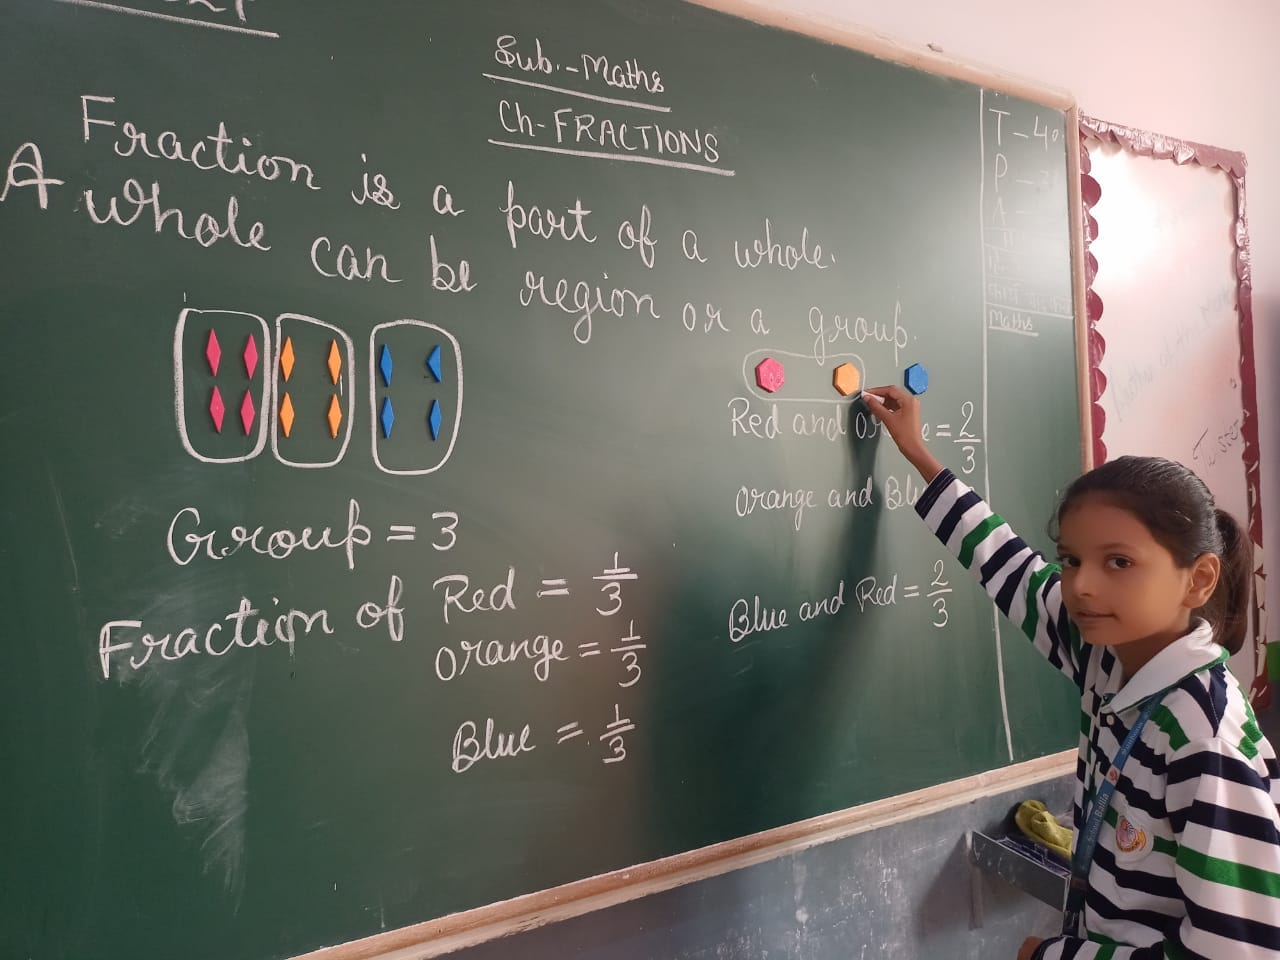 Sub.-Maths
Ch-FRACTIONS
Fraction is a part of a whole.
A whole can be region or a group.
Group = 3
Fraction of Red = 1/3
orange = 1/3
Blue = 1/3
Red and = 2/3
orange and
Blue and Red = 2/3
T - 40
P -
A -
Maths
Ballia